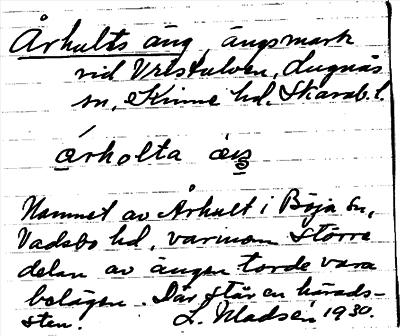 Århults äng, ängsmark
vid Vristulven, Lugnås
sn, Kinne hd. Skarab. l.
ǽrholta
Namnet av Århult i Böja sn,
Vadsbo hd, varinom större
delen av ängen torde vara
belägen. Där står en härads-
sten. L. Madsén 1930.